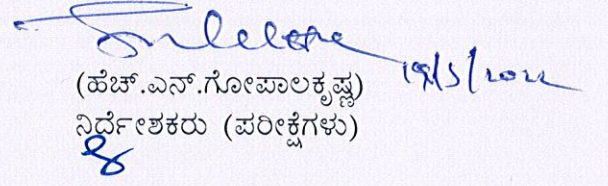 19/5/2022
(ಹೆಚ್.ಎನ್.ಗೋಪಾಲಕೃಷ್ಣ)
ನಿರ್ದೇಶಕರು (ಪರೀಕ್ಷೆಗಳು)